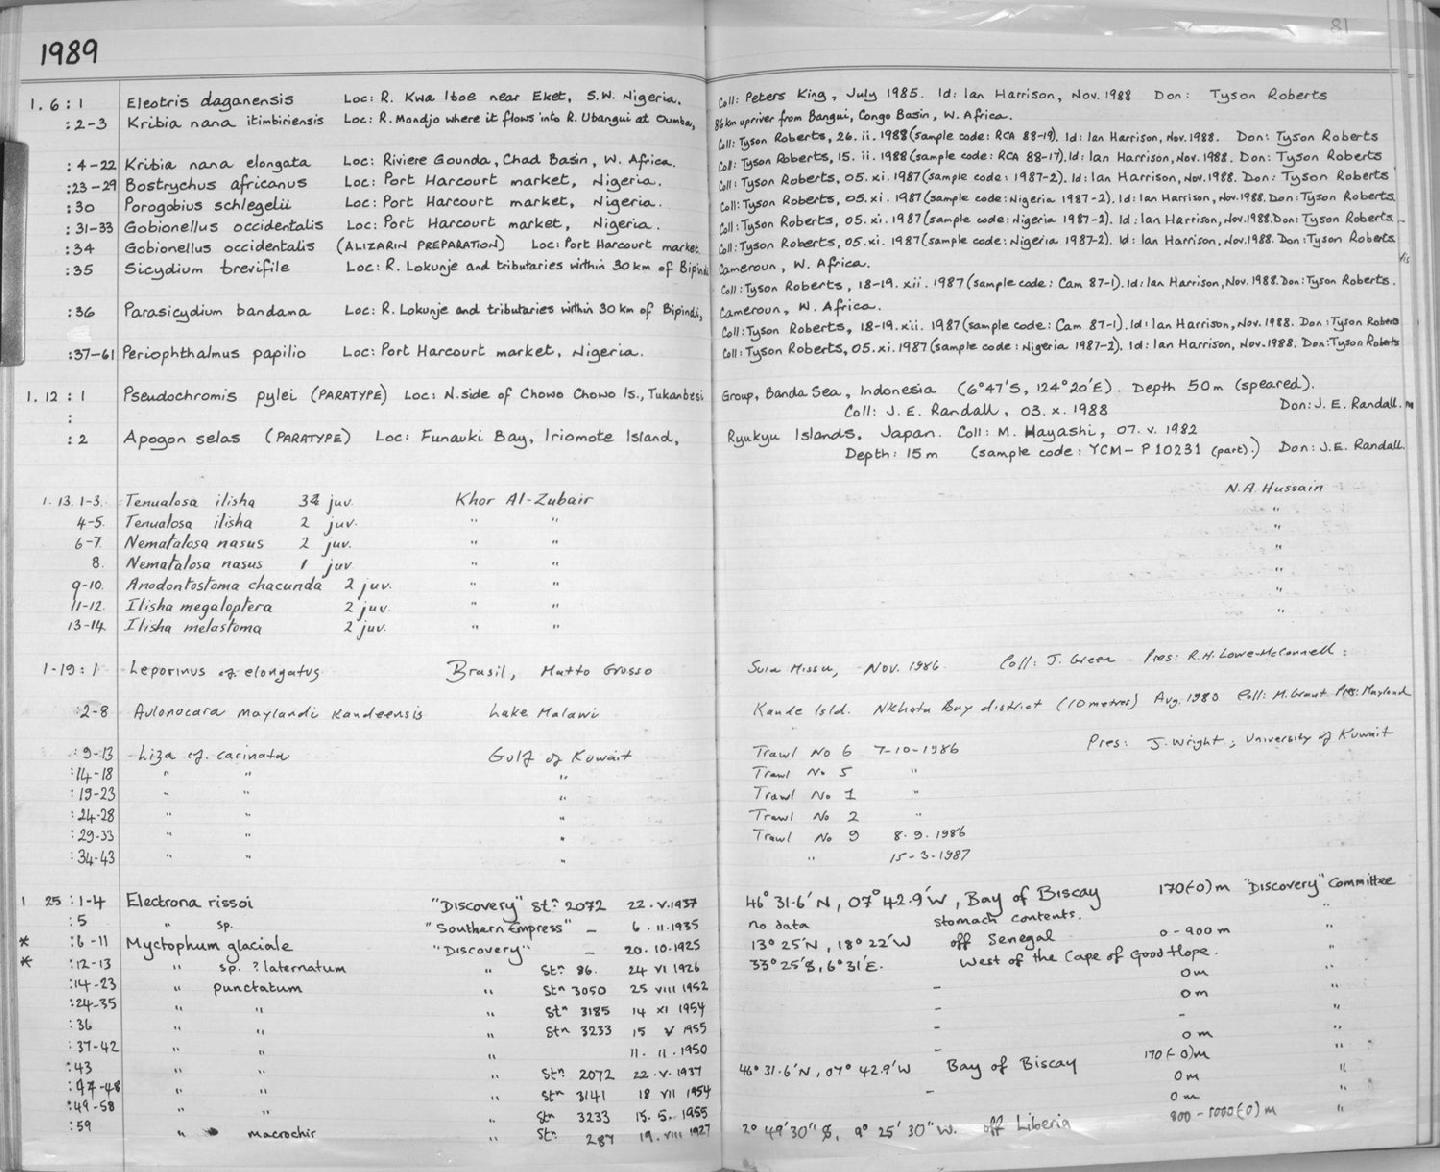 81
1989
1. 6 : 1 Eleotris daganensis Loc: R. Kwa Iboe near Eket, S.W. Nigeria. Coll: Peters King, July 1985. Id: Ian Harrison, Nov. 1988 Don: Tyson Roberts
:2-3 Kribia nana itimbiriensis Loc: R. Mandjo where it flows into R. Ubangui at Oumba, 86km upriver from Bangui, Congo Basin, W. Africa.
Coll: Tyson Roberts, 26. ii. 1988 (sample code: RCA 88-19). Id: Ian Harrison, Nov. 1988. Don: Tyson Roberts
:4-22 Kribia nana elongata Loc: Riviere Gounda, Chad Basin, W. Africa. Coll: Tyson Roberts, 15. ii. 1988 (sample code: RCA 88-17). Id: Ian Harrison, Nov. 1988. Don: Tyson Roberts
:23-29 Bostrychus africanus Loc: Port Harcourt market, Nigeria. Coll: Tyson Roberts, 05. xi. 1987 (sample code: 1987-2). Id: Ian Harrison, Nov. 1988. Don: Tyson Roberts
:30 Porogobius schlegelii Loc: Port Harcourt market, Nigeria. Coll: Tyson Roberts, 05. xi. 1987 (sample code: Nigeria 1987-2). Id: Ian Harrison, Nov. 1988. Don: Tyson Roberts.
:31-33 Gobionellus occidentalis Loc: Port Harcourt market, Nigeria. Coll: Tyson Roberts, 05. xi. 1987 (sample code: Nigeria 1987-2). Id: Ian Harrison, Nov. 1988. Don: Tyson Roberts
:34 Gobionellus occidentalis (ALIZARIN PREPARATION) Loc: Port Harcourt market. Coll: Tyson Roberts, 05. xi. 1987 (sample code: Nigeria 1987-2). Id: Ian Harrison. Nov. 1988. Don: Tyson Roberts.
:35 Sicydium brevifile Loc: R. Lokunje and tributaries within 30 km of Bipindi Cameroun, W. Africa.
Coll: Tyson Roberts, 18-19. xii. 1987 (sample code: Cam 87-1). Id: Ian Harrison, Nov. 1988. Don: Tyson Roberts.
:36 Parasicydium bandama Loc: R. Lokunje and tributaries within 30 km of Bipindi, Cameroun, W. Africa.
Coll: Tyson Roberts, 18-19. xii. 1987 (sample code: Cam 87-1). Id: Ian Harrison, Nov. 1988. Don: Tyson Roberts
:37-61 Periophthalmus papilio Loc: Port Harcourt market, Nigeria. Coll: Tyson Roberts, 05. xi. 1987 (sample code: Nigeria 1987-2). Id: Ian Harrison, Nov. 1988. Don: Tyson Roberts
1. 12 : 1 Pseudochromis pylei (PARATYPE) Loc: N. side of Chowo Chowo Is., Tukanbesi Group, Banda Sea, Indonesia (6°47'S, 124°20'E). Depth 50m (speared).
: Coll: J. E. Randall, 03. x. 1988 Don: J. E. Randall.
: 2 Apogon selas (PARATYPE) Loc: Funauki Bay, Iriomote Island, Ryukyu Islands. Japan. Coll: M. Hayashi, 07. v. 1982
Depth: 15 m (sample code: YCM- P 10231 (part).) Don: J.E. Randall.
1. 13. 1-3. Tenualosa ilisha 3 juv. Khor Al-Zubair N.A. Hussain
4-5. Tenualosa ilisha 2 juv. " " "
6-7. Nematalosa nasus 2 juv. " " "
8. Nematalosa nasus 1 juv. " " "
9-10. Anodontostoma chacunda 2 juv. " " "
11-12. Ilisha megaloptera 2 juv. " " "
13-14. Ilisha melastoma 2 juv. " " "
1-19 : 1 Leporinus cf elongatus Brasil, Matto Grosso Suia Missu, Nov. 1986 Coll: J. Green Pres: R.H. Lowe-McConnell.
:2-8 Aulonocara maylandi kandeensis Lake Malawi Kande Isld. Nkhata Bay district (10 metres) Aug. 1980 Coll: M. Grant Pres: Mayland
:9-13 Liza cf. carinata Gulf of Kuwait Trawl No 6 7-10-1986 Pres: J. Wright, University of Kuwait
:14-18 " " " Trawl No 5 "
:19-23 " " " Trawl No 1 "
:24-28 " " " Trawl No 2 "
:29-33 " " " Trawl No 9 8-9-1986
:34-43 " " " " 15-3-1987
1 25 :1-4 Electrona rissoi "Discovery" Stn 2072 22.V.1937 46° 31.6'N, 07° 42.9'W, Bay of Biscay 170(-0)m "Discovery" Committee
:5 " sp. "Southern Empress" – 6.11.1935 no data stomach contents. "
* :6-11 Myctophum glaciale "Discovery" – 20.10.1925 13° 25'N, 18° 22'W off Senegal 0-900m "
* :12-13 " sp. ?laternatum " Stn 86. 24 VI 1926 33° 25'S, 6° 31'E. West of the Cape of Good Hope. "
:14-23 " punctatum " Stn 3050 25 VIII 1952 – 0m "
:24-35 " " " Stn 3185 14 XI 1954 – 0m "
:36 " " " Stn 3233 15 V 1955 – - "
:37-42 " " " 11. 11. 1950 – 0m "
:43 " " " Stn 2072 22.V.1937 46° 31.6'N, 07° 42.9'W Bay of Biscay 170(-0)m "
:47-48 " " " Stn 3141 18 VII 1954 – 0m "
:49-58 " " " Stn 3233 15. 5. 1955 0m "
:59 " macrochir " Stn: 287 19. VIII 1927 2° 49'30"S, 9° 25' 30"W. off Liberia 800-1000(-0)m "